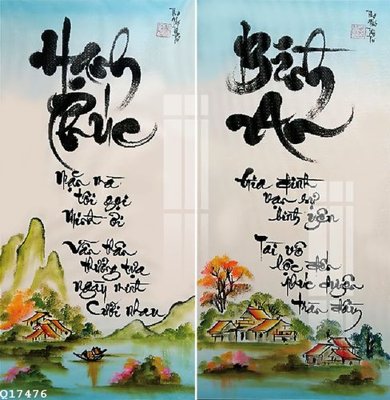 Hạnh
Phúc
Nhận mà
tôi gọi
Mình ơi
Vẫn thân
thương tựa
ngày mới
cưới nhau
Bình
An
Gia đình
vạn sự
bình yên
Tài vô
lộc đến
phúc duyên
tràn đầy
Q17476